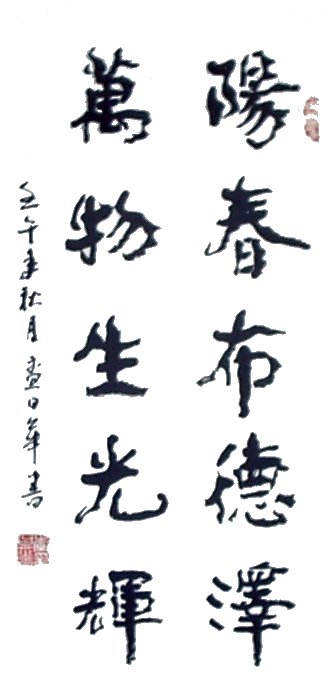 陽春布德澤
萬物生光輝
壬午年秋月孟日華書